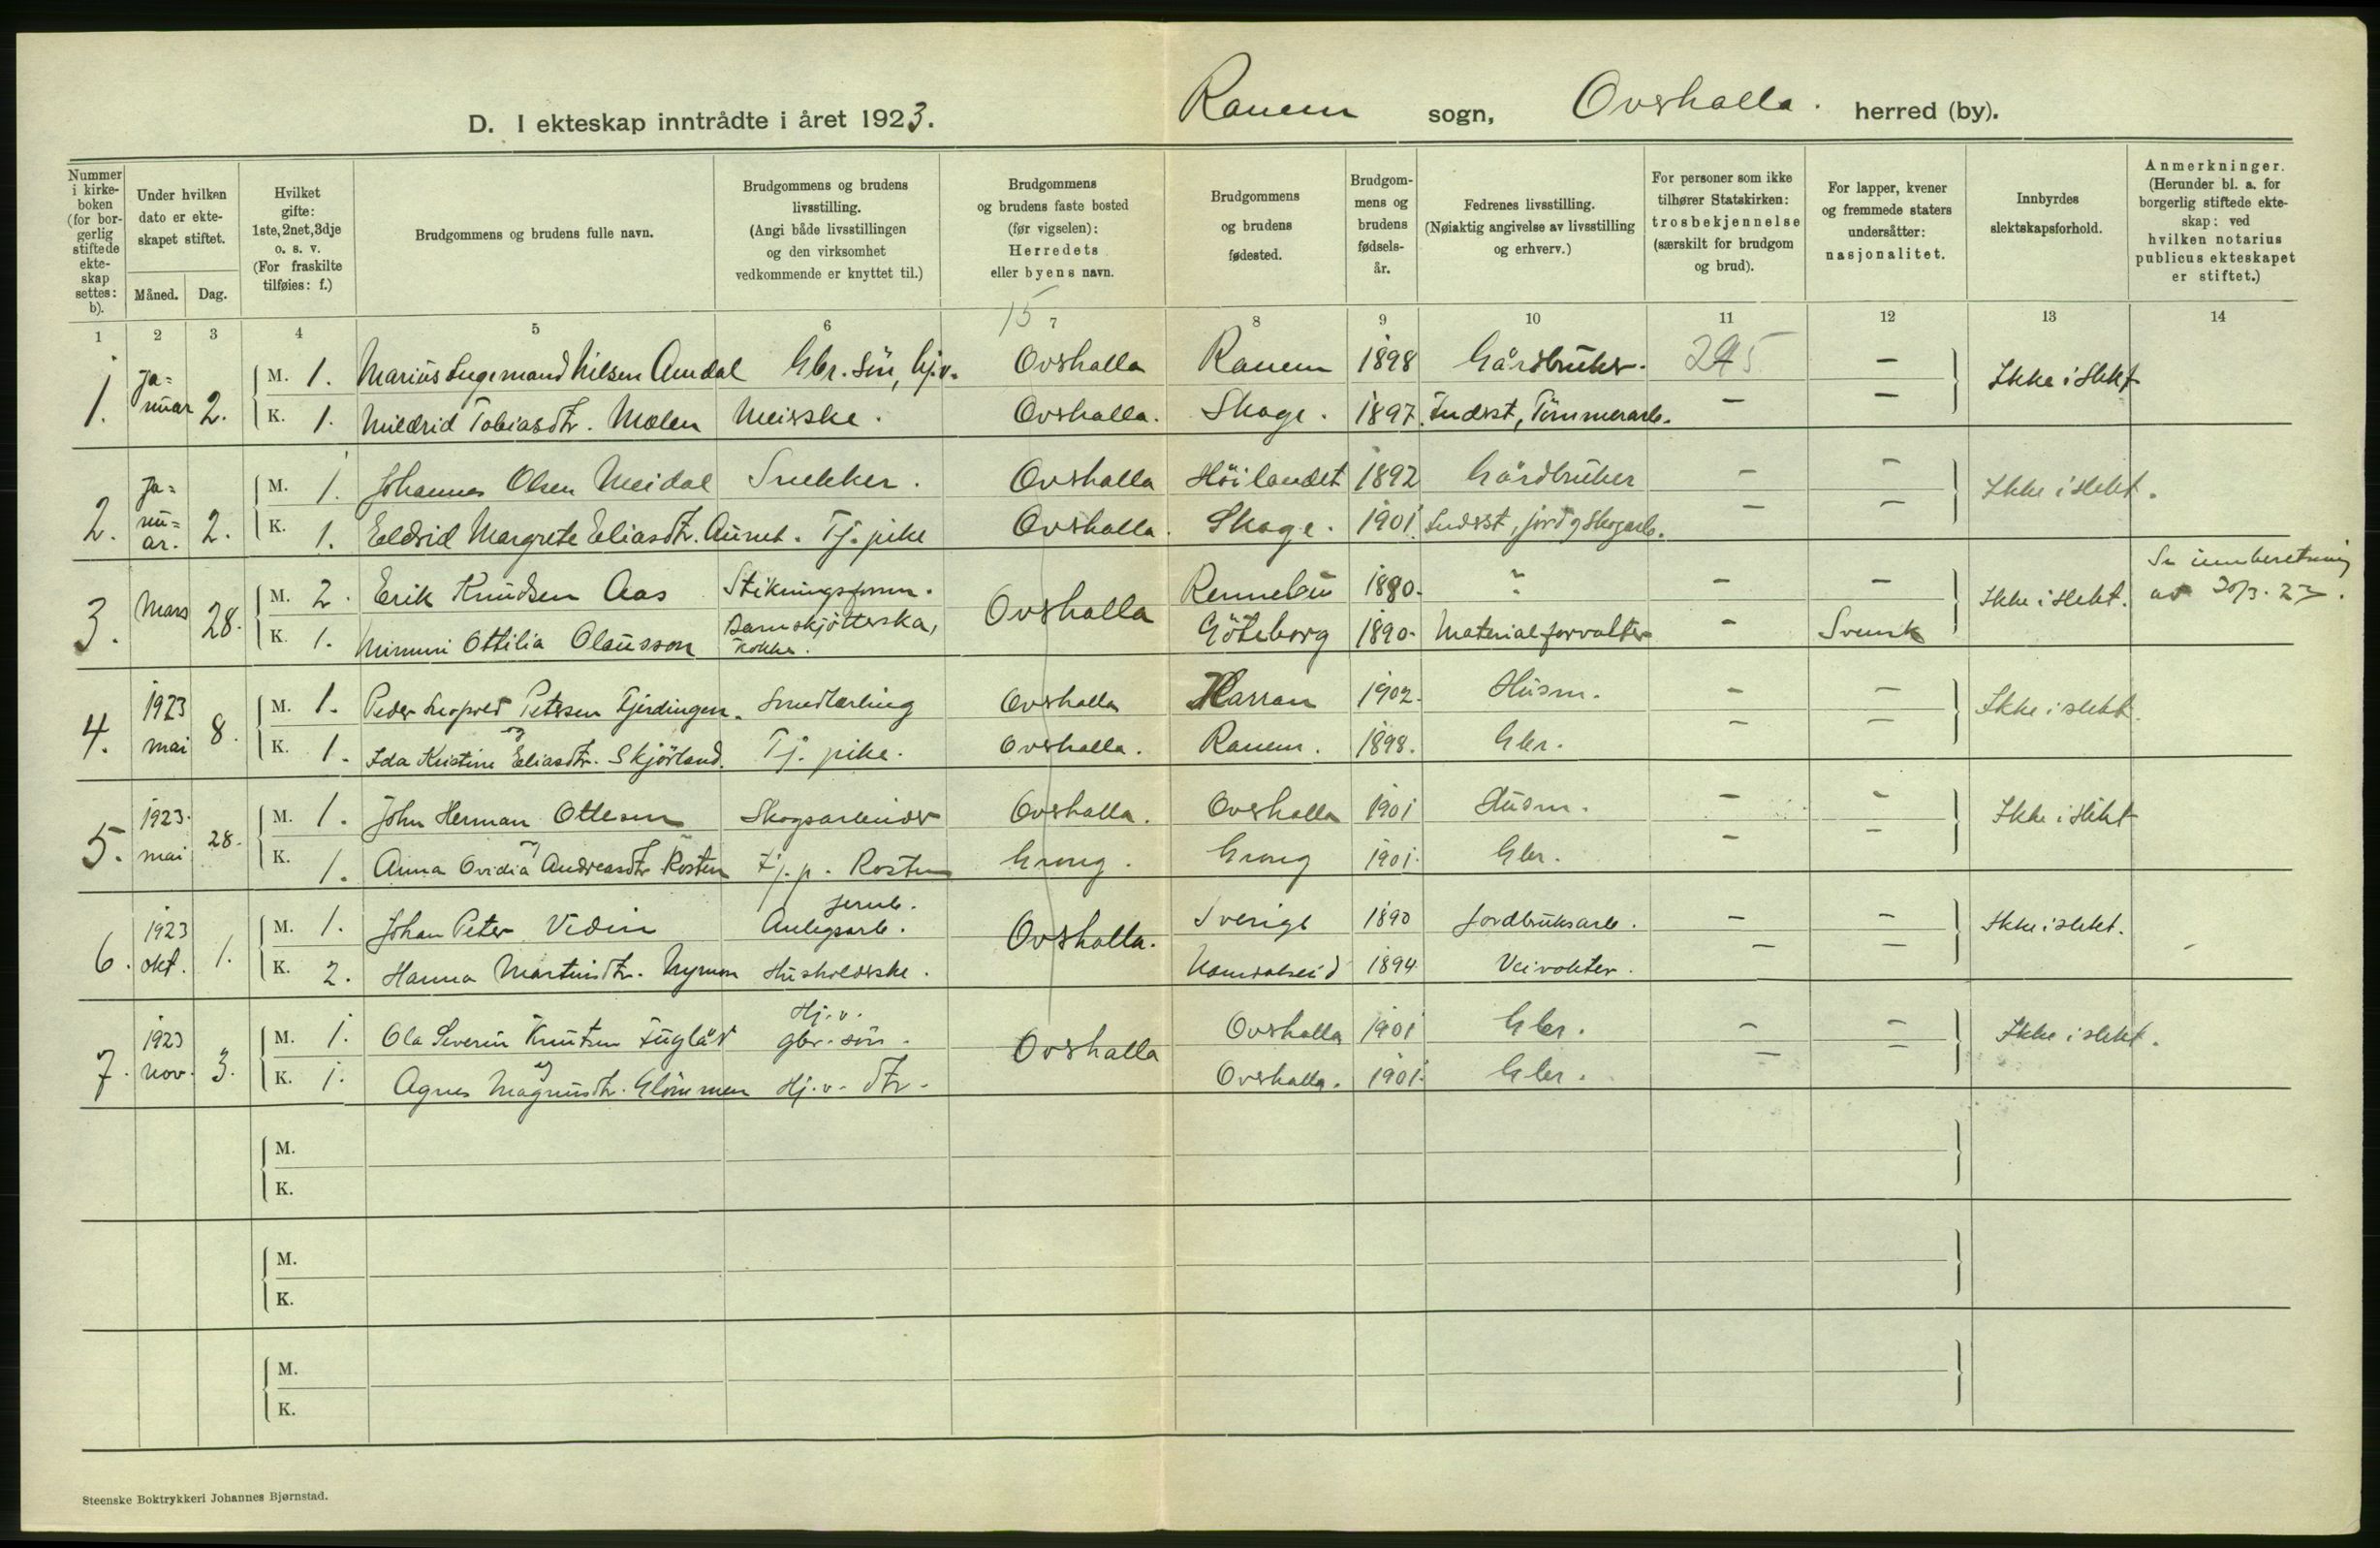 D. I ekteskap inntrådte i året 1923. Ranem sogn, Overhalla. herred (by).
Nummer i kirkeboken (for borgerlig stiftede ekteskap settes: b).
Under hvilken dato er ekteskapet stiftet.
Måned. Dag.
Hvilket gifte: 1ste, 2net, 3dje o. s. v. (For fraskilte tilføies: f.)
Brudgommens og brudens fulle navn.
Brudgommens og brudens livsstilling. (Angi både livsstillingen og den virksomhet vedkommende er knyttet til.)
Brudgommens og brudens faste bosted (før vigselen): Herredets eller byens navn.
Brudgommens og brudens fødested.
Brudgommens og brudens fødselsår.
Fedrenes livsstilling. (Nøiaktig angivelse av livsstilling og erhverv.)
For personer som ikke tilhører Statskirken: trosbekjennelse (særskilt for brudgom og brud).
For lapper, kvener og fremmede staters undersåtter: nasjonalitet.
Innbyrdes slektskapsforhold.
Anmerkninger. (Herunder bl. a. for borgerlig stiftede ekteskap: ved hvilken notarius publicus ekteskapet er stiftet.)
15
1 2 3 4 5 6 7 8 9 10 11 12 13 14
1. Januar 2. M. 1. Marius Ingemand Nilsen Amdal Gbr. sön, hj.v. Overhalla Ranem 1898 Gårdbruker. 245 — Ikke i slekt
K. 1. Mildrid Tobiasdtr. Molen Meierske. Overhalla. Skage. 1897. Inderst, Tömmerarb. — —
2. Januar. 2. M. 1. Johannes Olsen Meidal Snekker. Overhalla Höilandet 1892 Gårdbruker — — Ikke i slekt.
K. 1. Eldrid Margrete Eliasdtr. Aunet. Tj. pike Overhalla. Skage. 1901. Inderst, jord og Skogarb. — —
3. Mars 28. M. 2. Erik Knudsen Aas Stikningsform. Overhalla Rennebu 1880. " — — Ikke i slekt. Se innberetning av 30/3. 23.
K. 1. Mimmi Ottilia Olausson Barnskjötterska, kokke. Göteborg 1890. Materialforvalter — Svensk
4. 1923 mai 8. M. 1. Peder Leopold Petersen Fjerdingen. Smedlærling Overhalla Harran 1902. Husm. — — Ikke i slekt.
K. 1. Ida Kristine Eliasdtr. Skjörland. Tj. pike. Overhalla. Ranem. 1898. Gbr. — —
5. 1923. mai 28. M. 1. John Herman Ottesen Skogsarbeider Overhalla. Overhalla 1901 Husm. — — Ikke i slekt
K. 1. Anna Ovidia Andreasdtr Rosten tj. p. Rosten Grong. Grong 1901. Gbr. — —
6. 1923 okt. 1. M. 1. Johan Peter Vidin Jernb. Anlegsarb. Overhalla. Sverige 1890 Jordbruksarb. — — Ikke i slekt.
K. 2. Hanna Martinsdtr. Nymoen Husholderske. Namdalseid 1894 Veivokter. — —
7. 1923 nov. 3. M. 1. Ola Severin Knutsen Fuglår Hj. v. gbr. sön. Overhalla Overhalla 1901 Gbr. — — Ikke i slekt.
K. 1. Agnes Magnusdtr. Glömmen Hj. v. dtr. Overhalla. 1901. Gbr. — —
M.
K.
M.
K.
M.
K.
Steenske Boktrykkeri Johannes Bjørnstad.